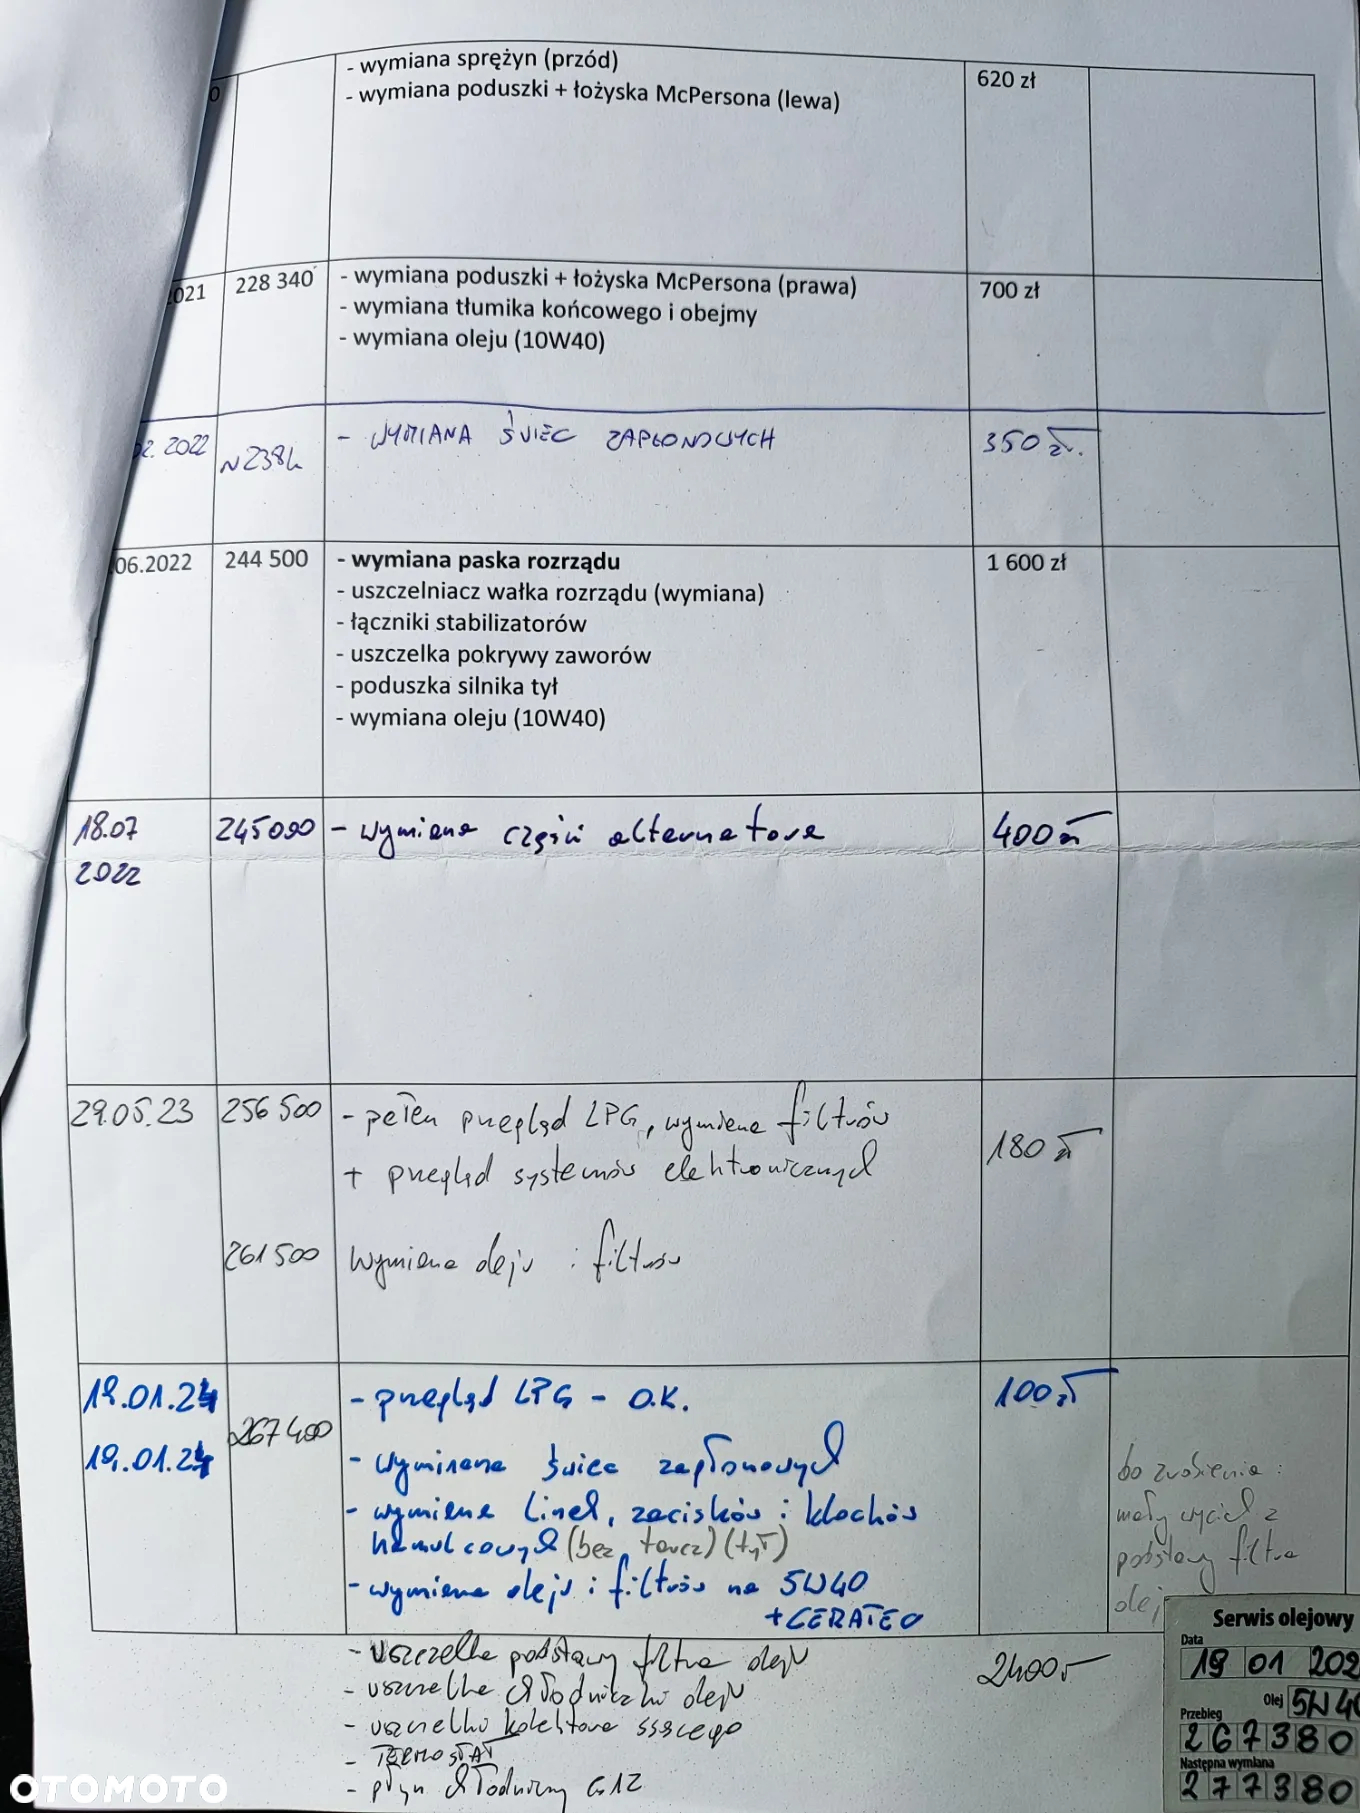 - wymiana sprężyn (przód)
- wymiana poduszki + łożyska McPersona (lewa)
620 zł
0
2021
228 340
- wymiana poduszki + łożyska McPersona (prawa)
- wymiana tłumika końcowego i obejmy
- wymiana oleju (10W40)
700 zł
02. 2022
N238k
- WYMIANA ŚWIEC ZAPŁONOWYCH
350 zł.
.06.2022
244 500
- wymiana paska rozrządu
- uszczelniacz wałka rozrządu (wymiana)
- łączniki stabilizatorów
- uszczelka pokrywy zaworów
- poduszka silnika tył
- wymiana oleju (10W40)
1 600 zł
18.07
2022
245000
- wymiana części alternatora
400 zł
29.05.23
256 500
- pełen przegląd LPG, wymiana filtrów
+ przegląd systemów elektronicznych
180 zł
261 500
Wymiana oleju i filtrów
19.01.24
- przegląd LPG - O.K.
100 zł
19.01.24
267 400
- wymiana świec zapłonowych
- wymiana linek, zacisków i klocków
hamulcowych (bez tarcz) (tył)
- wymiana oleju i filtrów na 5W40
+ CERATEC
do zrobienia :
mały wyciek z
podstawy filtra
olej
- uszczelka podstawy filtra oleju
- uszczelka chłodniczki oleju
- uszczelka kolektora ssącego
- TERMOSTAT
- płyn chłodniczy G12
2400
Serwis olejowy
Data
19 01 202
Olej 5W40
Przebieg
267380
Następna wymiana
277380
OTOMOTO